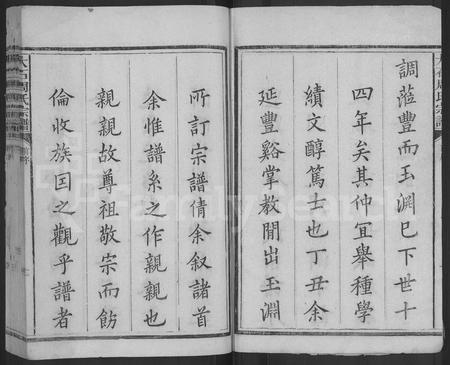 大石周氏宗譜
調蒞豐而玉淵已下世十
四年矣其仲冝舉種學
績文醇篤士也丁丑余
延豐谿掌教閒出玉淵
所訂宗譜倩余叙諸首
余惟譜系之作親親也
親親故尊祖敬宗而飭
倫收族囯之觀乎譜者
大石周氏宗譜
序
FamilySearch